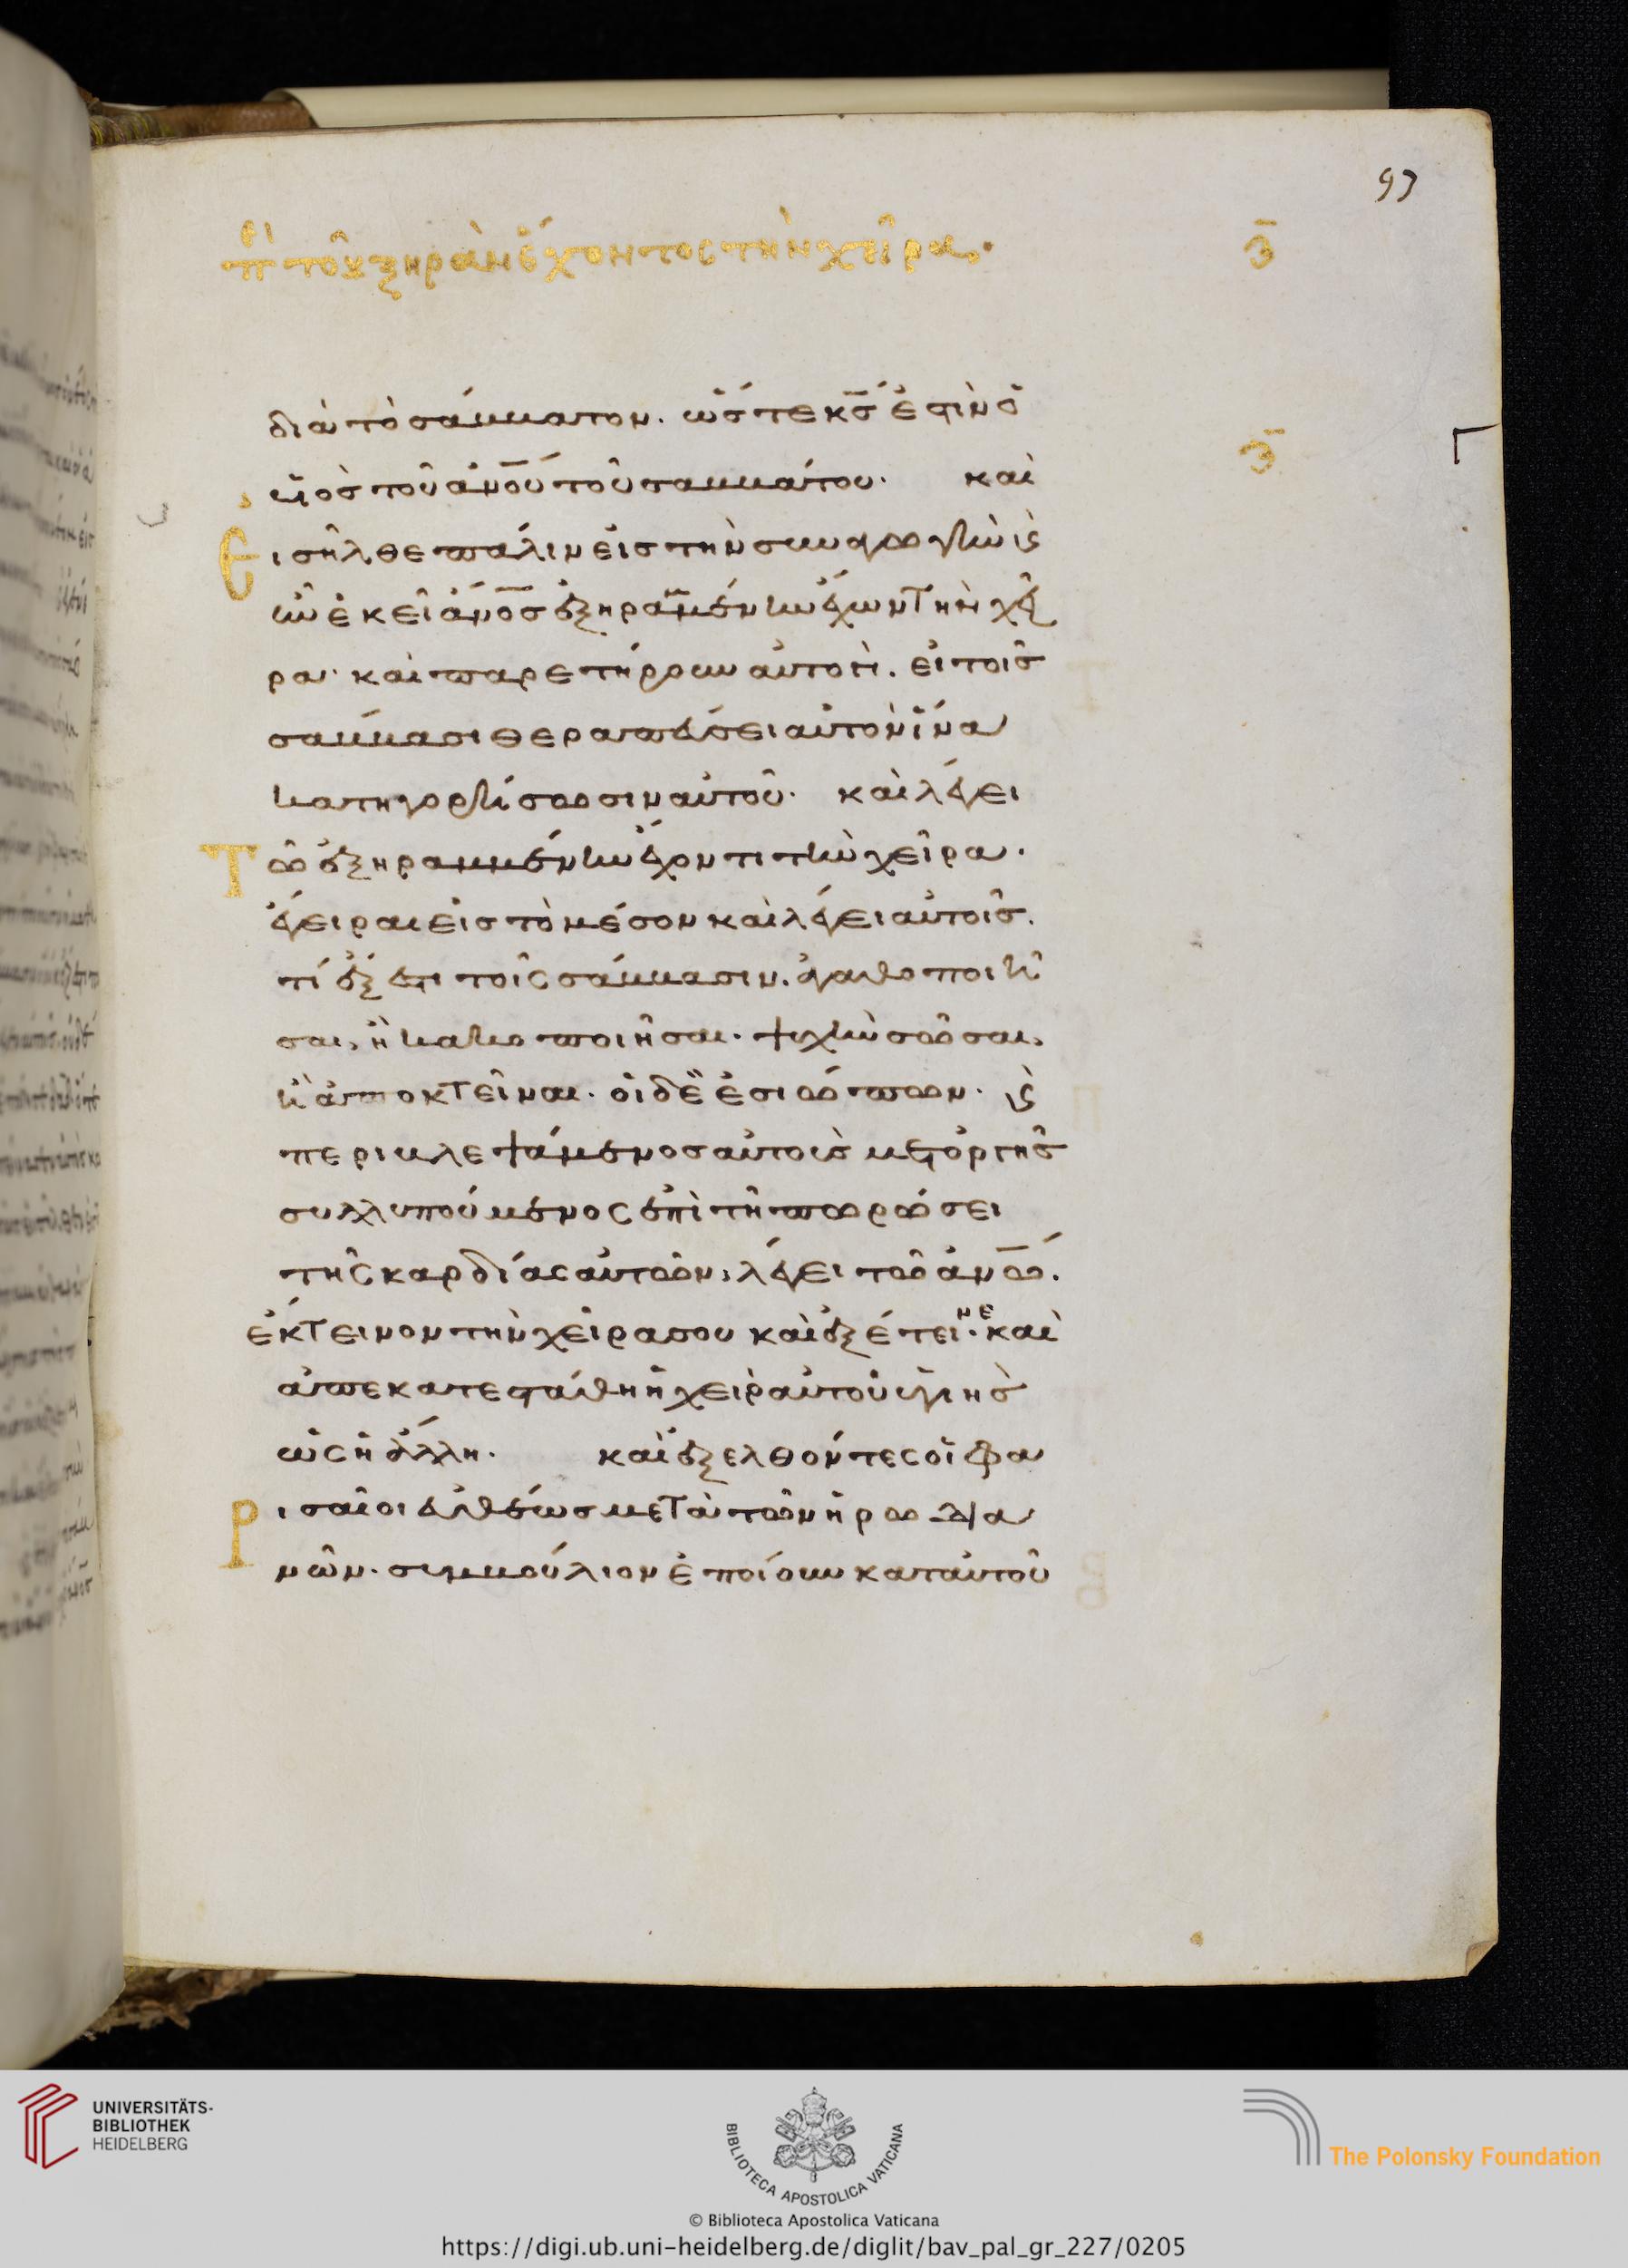 97
πε τοῦ ξηρὰν ἔχοντος τὴν χεῖρα. ζ̅
διὰ τὸ σάββατον. ὥστε κ̅σ̅ ἐστὶν ὁ
υἱὸσ τοῦ ἀν̅ο̅ύ τοῦ σαββάτου. και ζ̅
Εισῆλθε πάλιν εἰσ τὴν συναγωγὴν· καὶ
ἦν ἐκεῖ ἄν̅ο̅σ ἐξηραμμένην ἔχων τὴν χεῖ
ρα· καὶ παρετήρουν αὐτὸν. εἰ τοῖσ
σάββασι θεραπεύσει αὐτὸν ἵνα
κατηγορήσωσιν αὐτοῦ. καὶ λέγει
Τῶ ἐξηραμμένην ἔχοντι τὴν χεῖρα.
ἔγειραι εἰσ τὸ μέσον καὶ λέγει αὐτοῖσ.
τί ἔξεστι τοῖς σάββασιν. ἀγαθοποιῆ
σαι, ἢ κακοποιῆσαι. ψυχὴν σῶσαι,
ἢ ἀποκτεῖναι. οἱ δὲ ἐσιώπων. καὶ
περιβλεψάμενοσ αὐτοὺσ μετ᾽ ὀργῆσ
συλλυπούμενος ἐπὶ τῆ πωρώσει
τῆς καρδίας αὐτῶν, λέγει τῶ ἀν̅ω̅.
ἔκτεινον τὴν χεῖρα σου καὶ ἐξέτεινε. καὶ
ἀπεκατεστάθη ἡ χεὶρ αὐτοῦ ὑγιὴσ
ὡς ἡ ἄλλη. καὶ ἐξελθόντες οἱ φα
Ρισαῖοι εὐθέως μετὰ τῶν ἡρωδια
νῶν. συμβούλιον ἐποίουν κατ᾽ αὐτοῦ
UNIVERSITÄTS-
BIBLIOTHEK
HEIDELBERG
BIBLIOTECA APOSTOLICA VATICANA
The Polonsky Foundation
© Biblioteca Apostolica Vaticana
https://digi.ub.uni-heidelberg.de/diglit/bav_pal_gr_227/0205